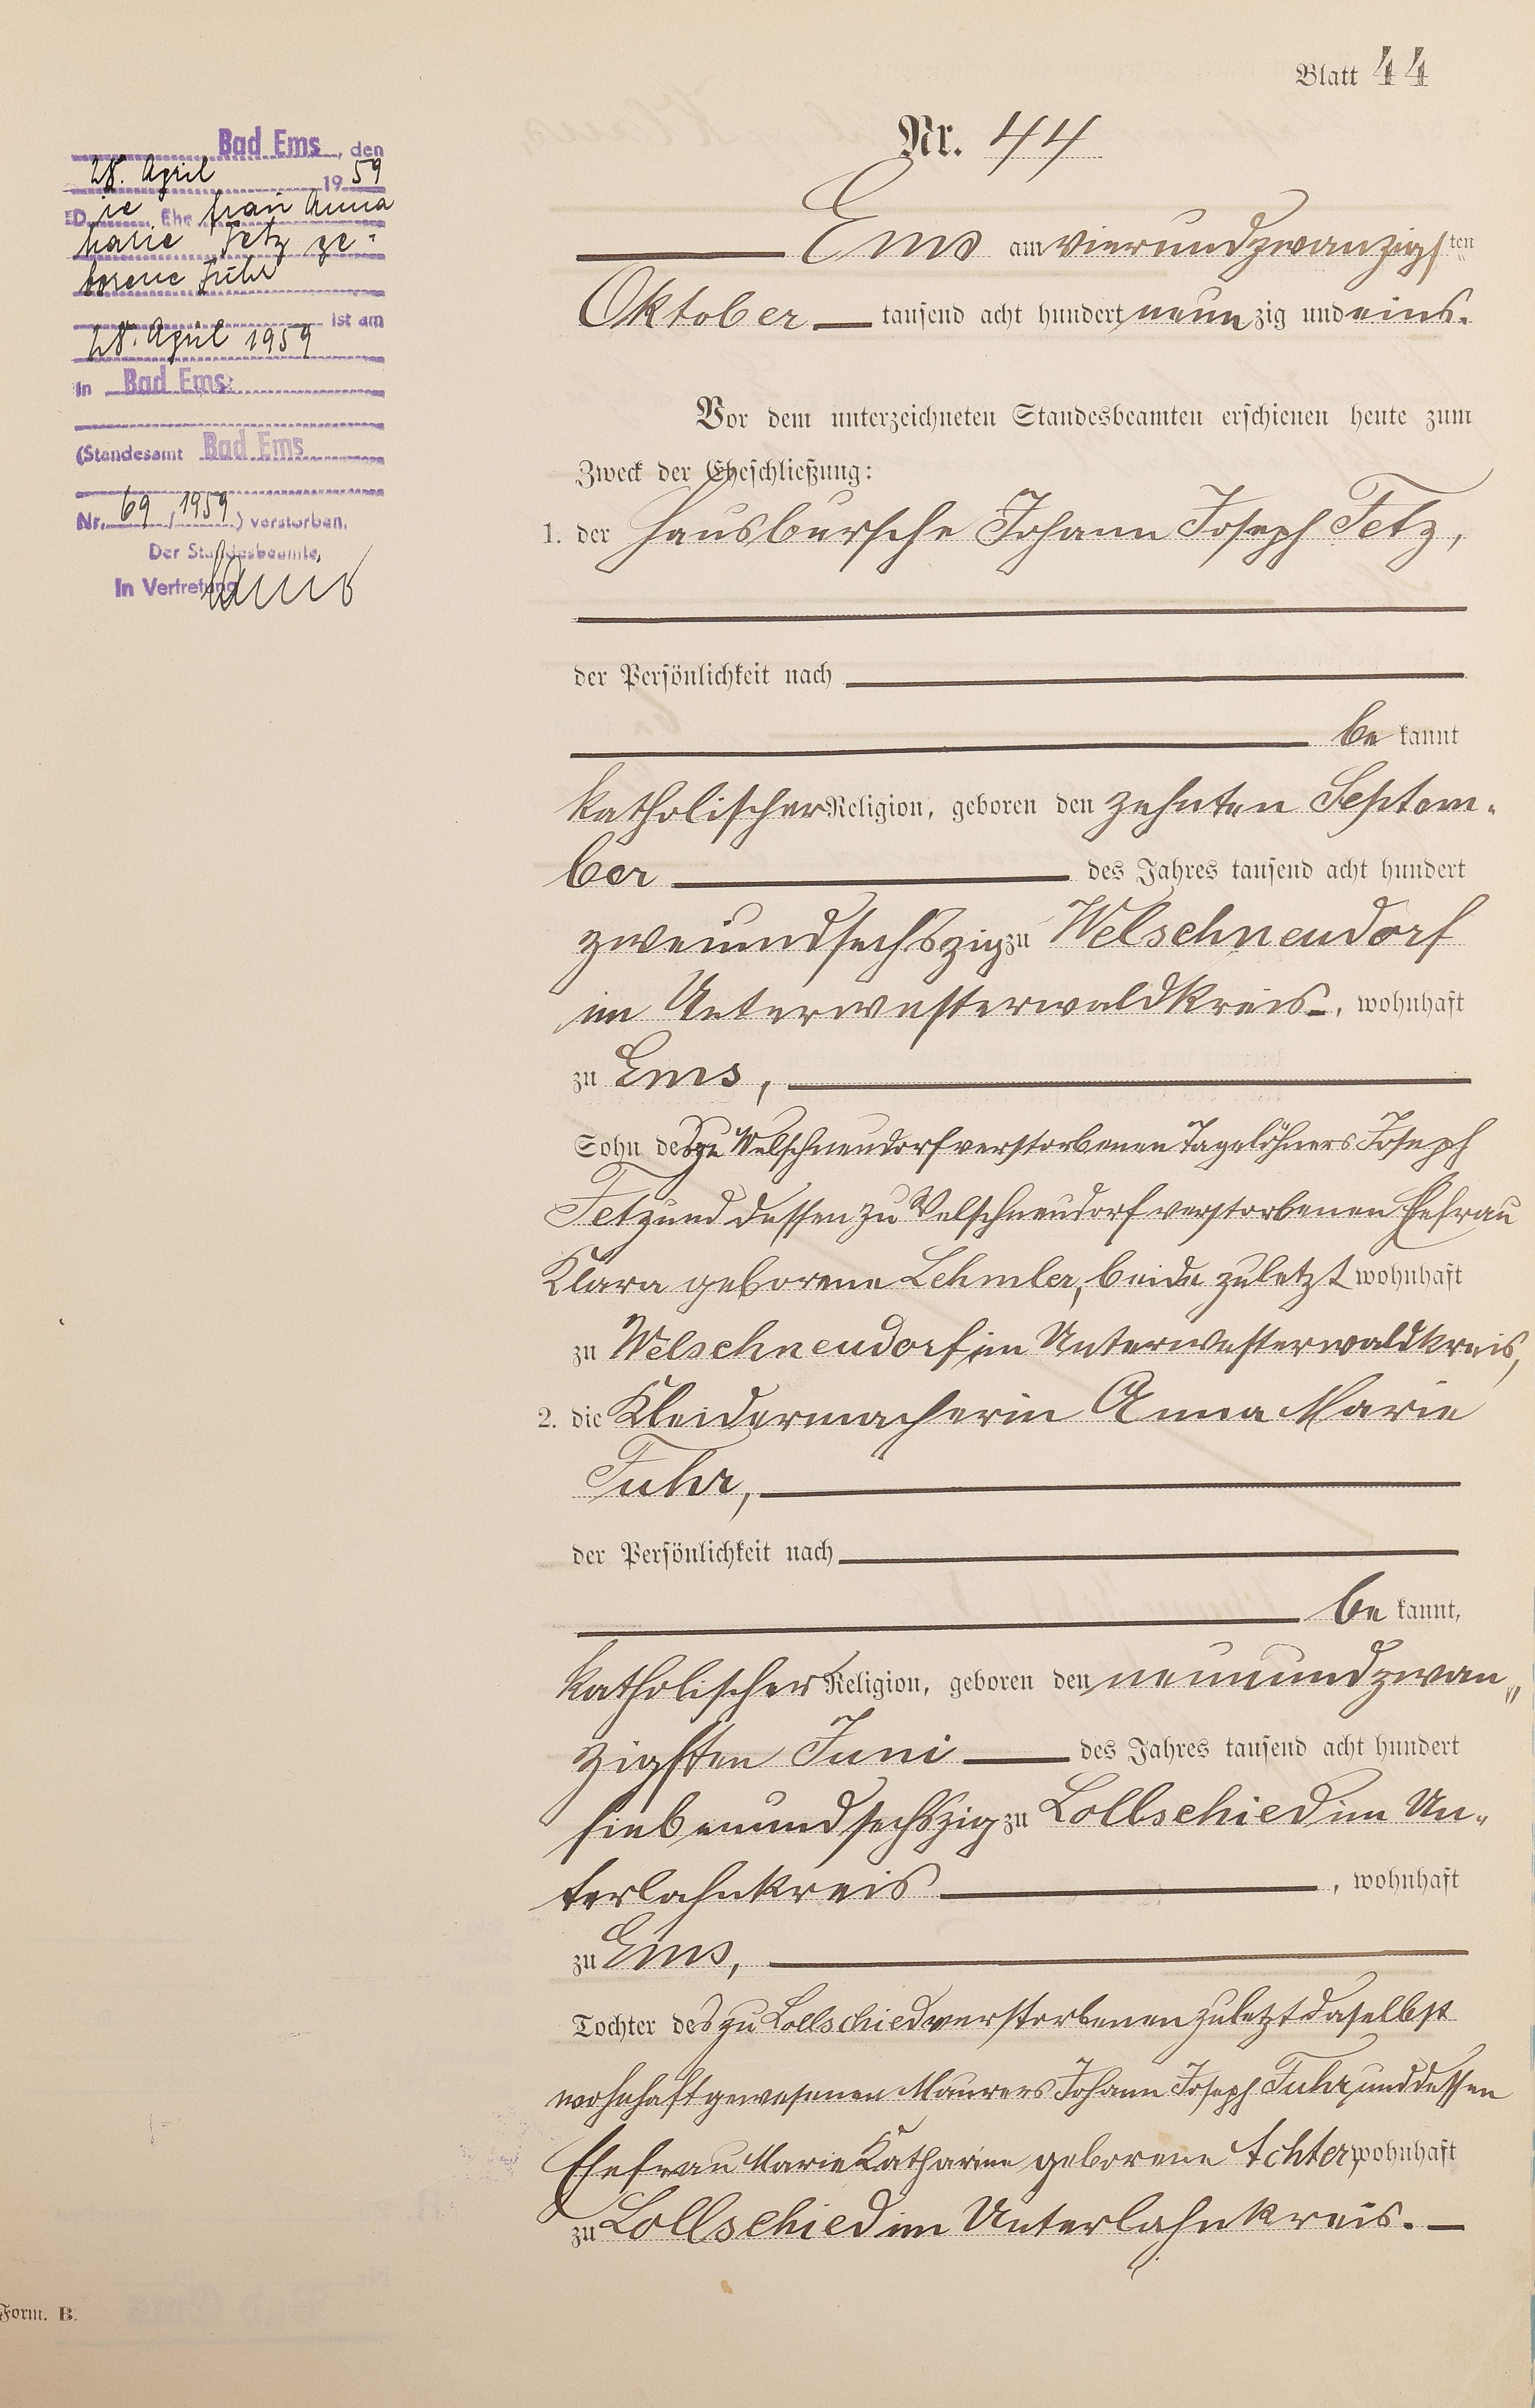 Blatt 44
Nr. 44
Bad Ems, den
28. April 1959
Die Ehefrau Anna
Marie Fetz ge-
borene Fuhr
ist am
28. April 1959
in Bad Ems
(Standesamt Bad Ems
Nr. 69/1959) verstorben.
Der Standesbeamte,
In Vertretung
Ems am vierundzwanzigsten
Oktober tausend acht hundert neunzig und eins.
Vor dem unterzeichneten Standesbeamten erschienen heute zum
Zweck der Eheschließung:
1. der Hausbursche Johann Joseph Fetz,
der Persönlichkeit nach
bekannt
katholischer Religion, geboren den zehnten Septem-
ber des Jahres tausend acht hundert
zweiundsechszig zu Welschneudorf
im Unterwesterwaldkreis, wohnhaft
zu Ems,
Sohn des zu Welschneudorf verstorbenen Tagelöhners Joseph
Fetz und dessen zu Welschneudorf verstorbenen Ehefrau
Klara geborene Lehmler, beide zuletzt wohnhaft
zu Welschneudorf im Unterwesterwaldkreis,
2. die Kleidermacherin Anna Marie
Fuhr,
der Persönlichkeit nach
bekannt,
katholischer Religion, geboren den neunundzwan-
zigsten Juni des Jahres tausend acht hundert
siebenundsechszig zu Lollschied im Un-
terlahnkreis, wohnhaft
zu Ems,
Tochter des zu Lollschied verstorbenen zuletzt daselbst
wohnhaft gewesenen Maurers Johann Joseph Fuhr, und dessen
Ehefrau Marie Katharine geborene Achter, wohnhaft
zu Lollschied im Unterlahnkreis.
Form. B.